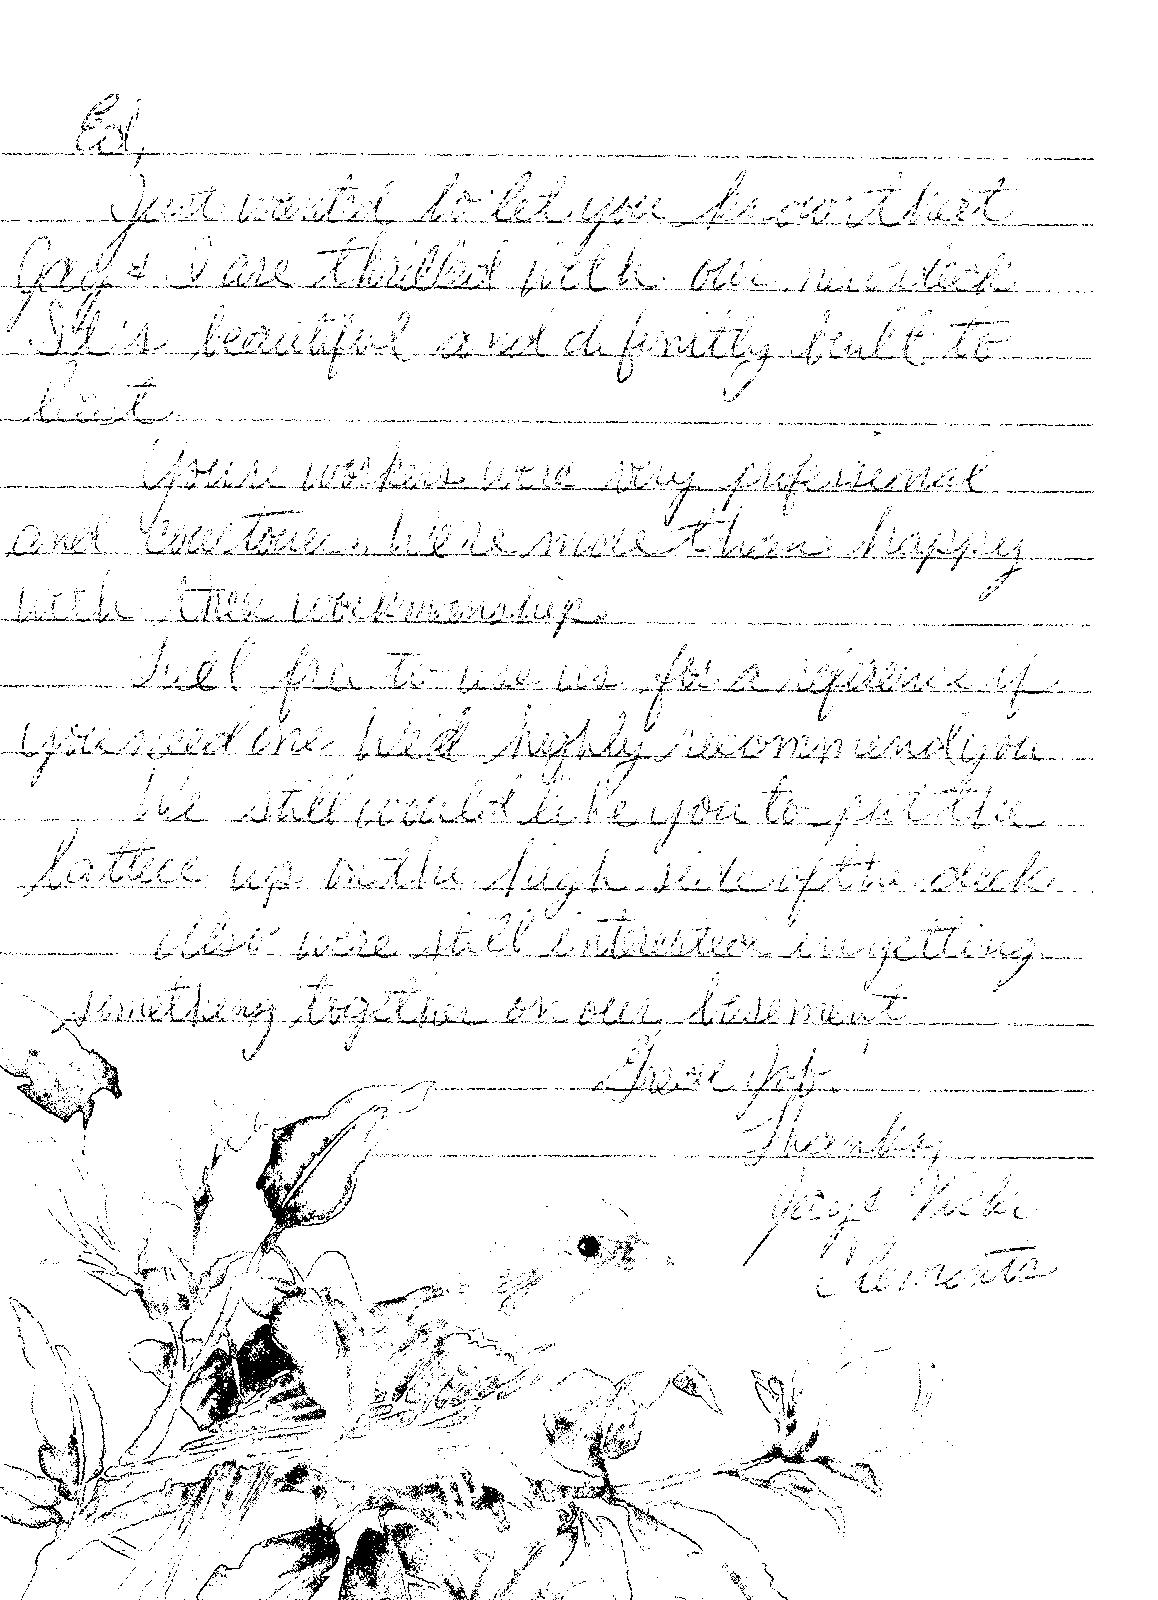 Ed,
Just wanted to let you know that
& I are thrilled with our new deck
It is beautiful and definitly built to
last.
Youre workers were very professional
and courtous. We're more than happy
with their workmanship.
Feel free to use us for a reference if
you need one. We'd highly recommend you
We still would like you to put the
lattice up on the high side of the deck
Also were still interested in getting
something together on our basement
Great Job.
Thanks,
& Vicki
Clements